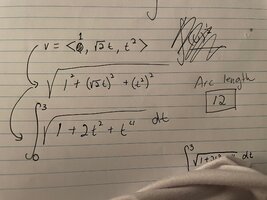 v = < 1, √2 t, t² >
√(1² + (√2t)² + (t²)²)
Arc length
12
∫₀³ √(1 + 2t² + t⁴) dt
∫³ √(1+2t² dt